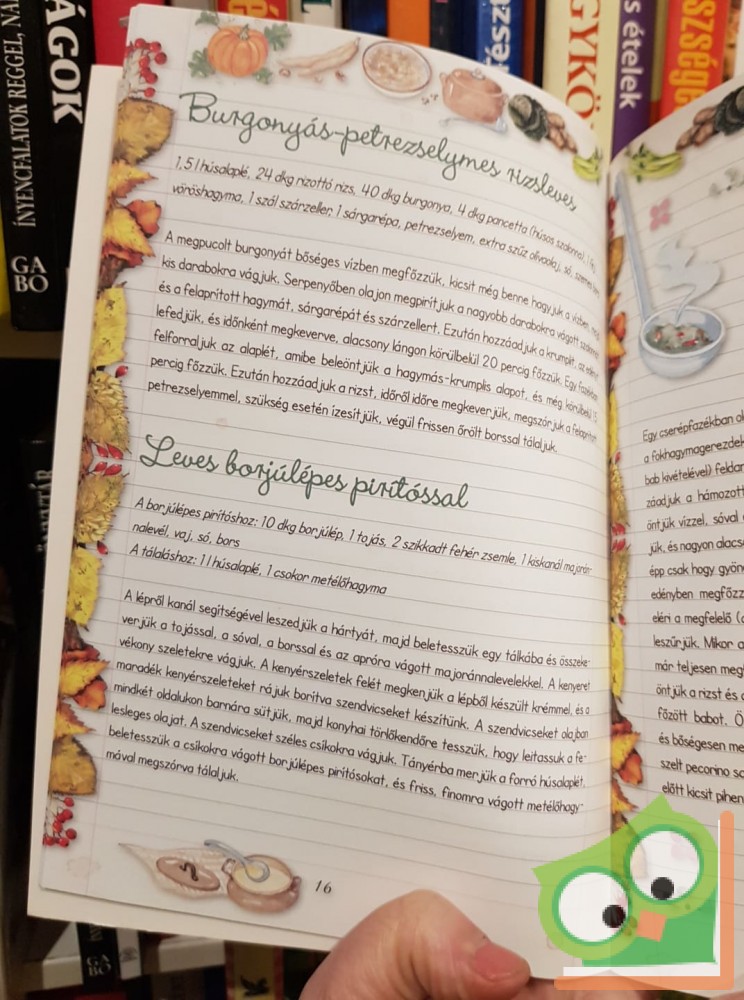 ÍNYENCFALATOK REGGEL, NA
GA
BO
ÁGOK
észe
GYKÖ
s ételek
szsége
Burgonyás-petrezselymes rizsleves
1,5 l húsalaplé, 24 dkg rizottó rizs, 40 dkg burgonya, 4 dkg pancetta (húsos szalonna), 1 fej
vöröshagyma, 1 szál szárzeller, 1 sárgarépa, petrezselyem, extra szűz olívaolaj, só, szemes bors
A megpucolt burgonyát bőséges vízben megfőzzük, kicsit még benne hagyjuk a vízben, majd
kis darabokra vágjuk. Serpenyőben olajon megpirítjuk a nagyobb darabokra vágott szalonnát
és a felaprított hagymát, sárgarépát és szárzellert. Ezután hozzáadjuk a krumplit, az edényt
lefedjük, és időnként megkeverve, alacsony lángon körülbelül 20 percig főzzük. Egy fazékban
felforraljuk az alaplét, amibe beleöntjük a hagymás-krumplis alapot, és még körülbelül 15
percig főzzük. Ezután hozzáadjuk a rizst, időről időre megkeverjük, megszórjuk a felaprított
petrezselyemmel, szükség esetén ízesítjük, végül frissen őrölt borssal tálaljuk.
Leves borjúlépes pirítóssal
A borjúlépes pirítóshoz: 10 dkg borjúlép, 1 tojás, 2 szikkadt fehér zsemle, 1 kiskanál majorán-
nalevél, vaj, só, bors
A tálaláshoz: 1 l húsalaplé, 1 csokor metélőhagyma
A lépről kanál segítségével leszedjük a hártyát, majd beletesszük egy tálkába és összeke-
verjük a tojással, a sóval, a borssal és az apróra vágott majoránnalevelekkel. A kenyeret
vékony szeletekre vágjuk. A kenyérszeletek felét megkenjük a lépből készült krémmel, és a
maradék kenyérszeleteket rájuk borítva szendvicseket készítünk. A szendvicseket olajban
mindkét oldalukon barnára sütjük, majd konyhai törlőkendőre tesszük, hogy leitassuk a fe-
lesleges olajat. A szendvicseket széles csíkokra vágjuk. Tányérba merjük a forró húsalaplét,
beletesszük a csíkokra vágott borjúlépes pirítósokat, és friss, finomra vágott metélőhagy-
mával megszórva tálaljuk.
16
Egy cserépfazékban ol
a fokhagymagerezdek
bab kivételével) feldar
záadjuk a hámozott
öntjük vízzel, sóval
jük, és nagyon alacso
épp csak hogy gyön
edényben megfőzz
eléri a megfelelő (
leszűrjük. Mikor a
már teljesen meg
öntjük a rizst és
főzött babot. Ö
és bőségesen me
szelt pecorino sa
előtt kicsit pihen
GA
BO